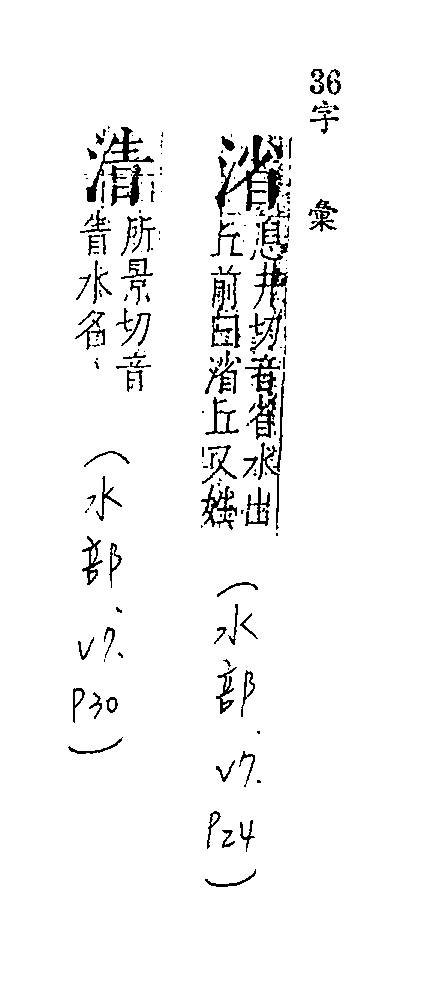 36字彙
渻
息井切音省水出
丘前曰渻丘又姓
(水部、V7.P24)
渻
所景切音
眚水名、
(水部、V7.P30)